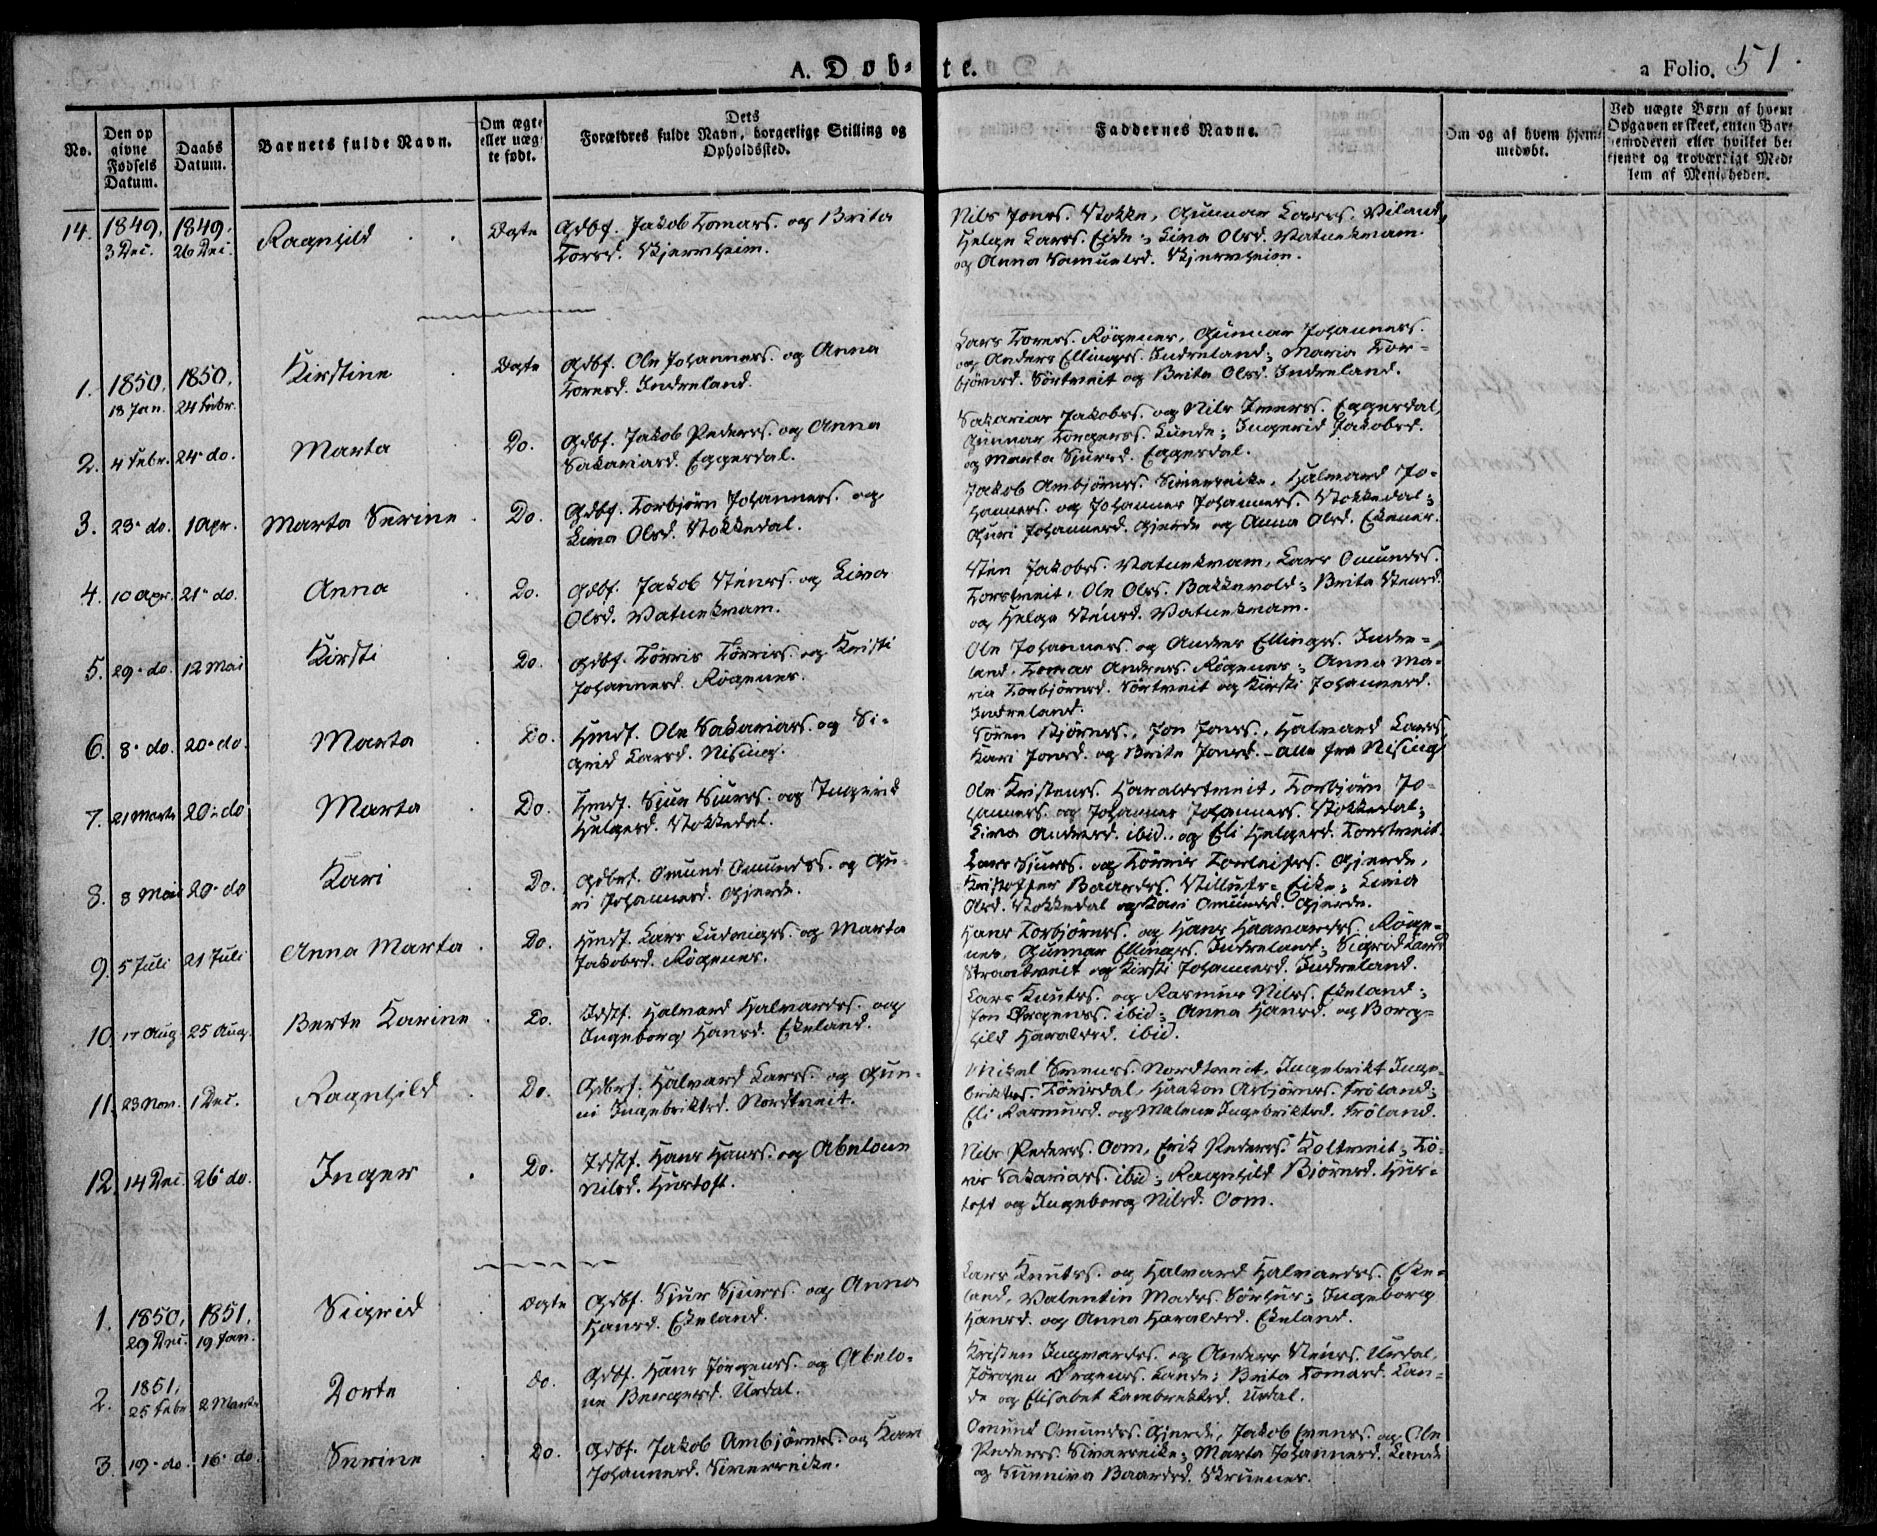 A. Døbte.
a Folio. 51.
No.
Den opgivne Fødsels Datum.
Daabs Datum.
Barnets fulde Navn.
Om ægte eller uægte født.
Dets Forældres fulde Navn, borgerlige Stilling og Opholdssted.
Faddernes Navne.
Om og af hvem hjemmedøbt.
Ved uægte Børn af hvem Opgaven er skeet, enten Barnemoderen eller hvilket bekjendt og troværdigt Medlem af Menigheden.
14. 1849, 3 Dec. 1849, 26 Dec. Ragnhild Ægte Gdbf. Jakob Tomass. og Brita
Torsd. Skjernheim.
Nils Jons. Stokke, Gunnar Larss. Viland,
Helge Larss. Eide; Liva Olsd. Vatnekvam
og Anna Samuelsd. Skjernheim.
1. 1850, 13 Jan. 1850, 24 Febr. Kirstine Ægte Gdbf. Ole Johanness. og Anna
Toresd. Indreland.
Lars Toress. Røgenes, Gunnar Johanness.
og Anders Ellingss. Indreland; Maria Tor-
bjørnsd. Sørtveit og Brita Olsd. Indreland.
2. 4 Febr. 24 do. Marta Do. Gdbf. Jakob Peders. og Anna
Sakariasd. Eggerdal.
Sakarias Jakobs. og Nils Iverss. Eggerdal,
Gunnar Tongerss. Lunde; Ingerid Jakobsd.
og Marta Sjursd. Eggerdal.
3. 23 do. 1 Apr. Marta Serine Do. Gdbf. Torbjørn Johanness. og
Liva Olsd. Stokkedal.
Jakob Ambjørnss. Siverseike, Halvard Jo-
hanness. og Johannes Johanness. Stokkedal;
Guri Johannesd. Gjerde og Anna Olsd. Ekenes.
4. 10 Apr. 21 do. Anna Do. Gdbf. Jakob Stenss. og Liva
Olsd. Vatnekvam.
Sten Jakobs. Vatnekvam, Lars Omunds.
Torstveit, Ole Olss. Bakkevold; Brita Stensd.
og Helga Stensd. Vatnekvam.
5. 29 do. 12 Mai Kirsti Do. Gdbf. Tørris Tørriss. og Kristi
Johannesd. Røgenes.
Ole Johanness. og Anders Ellingss. Indre-
land, Tomas Anderss. Røgenes; Anna Ma-
ria Torbjørnsd. Sørtveit og Kirsti Johannesd.
Indreland.
6. 8 do. 20 do. Marta Do. Hmdf. Ole Sakariass. og Si-
grid Larsd. Nising.
Søren Bjørnss., Jon Jonss., Halvard Larss.,
Kari Jonsd. og Brite Jonsd. - alle fra Nising
7. 21 Marts 20 do Marta Do. Hmdf. Sjur Sjurss. og Ingerid
Helgesd. Stokkedal.
Ole Kristenss. Haraldstveit, Torbjørn Jo-
hanness. og Johannes Johanness. Stokkedal;
Liva Andersd. ibid. og Eli Helgesd. Torstveit.
8. 8 Mai 20 do Kari Do. Gdbrf. Omund Omundss. og Gu-
ri Johannesd. Gjerde.
Lars Sjurss. og Tørris Torleifss. Gjerde,
Kristoffer Baardss. Eike; Liva
Olsd. Stokkedal og Kari Omundsd. Gjerde.
9. 5 Juli 21 Juli Anna Marta Do. Hmdf. Lars Ludvigss. og Marta
Jakobsd. Røgenes.
Hans Torbjørnss. og Hans Haavardss. Røge-
nes, Gunnar Ellingss. Indreland; Sigrid Larsd.
og Kirsti Johannesd. Indreland.
10. 17 Aug 25 Aug. Berte Karine Do. Idstf. Halvard Halvardss. og
Ingeborg Hansd. Ekeland.
Lars Knutss. og Rasmus Nilss. Ekeland;
Jon Ørgenss. ibid; Anna Hansd. og Borg-
hild Haraldsd. ibid.
11. 23 Nov. 1 Dec. Ragnhild Do. Gdbrf. Halvard Larss. og Gun-
ni Ingebriktsd. Nordtveit.
Mikel Svenss. Nordtveit, Ingebrikt Inge-
briktss. Tørisdal, Haakon Asbjørnss. Frøland;
Eli Rasmusd. og Malene Ingebriktsd. Frøland.
12. 14 Dec. 26 do. Inger Do. Idstf. Hans Hanss. og Abelone
Nilsd. Hustoft.
Nils Pederss. Oom, Erik Pederss. Koltveit, Tø-
ris Sakariass. ibid; Ragnhild Bjørnsd. Hus-
toft og Ingeborg Nilsd. Oom.
1. 1850, 29 Dec. 1851, 19 Jan. Sigrid Ægte Gdbf. Sjur Sjurss. og Anna
Hansd. Ekeland.
Lars Knutss. og Halvard Halvardss. Eke-
land, Valentin Madss. Sørhus; Ingeborg
Hansd. og Anna Haraldsd. Ekeland.
2. 1851, 25 Febr 2 Marts Dorte do. Gdbf. Hans Jørgenss. og Abelo-
ne Bergesd. Urdal.
Kristen Ingvardss. og Anders Stenss. Urdal,
Jørgen Ørgenss. Lande; Brita Tomasd. Lan-
de og Elisabet Lambrektsd. Urdal.
3. 19 do. 16 do. Serine Do. Gdbf. Jakob Ambjørnss. og Kari
Johannesd. Siverseike.
Omund Omundss. Gjerde, Jakob Evenss. og Ole
Pederss. Siverseike; Marta Johannesd. Lande
og Sunniva Baardsd. Skruenes.